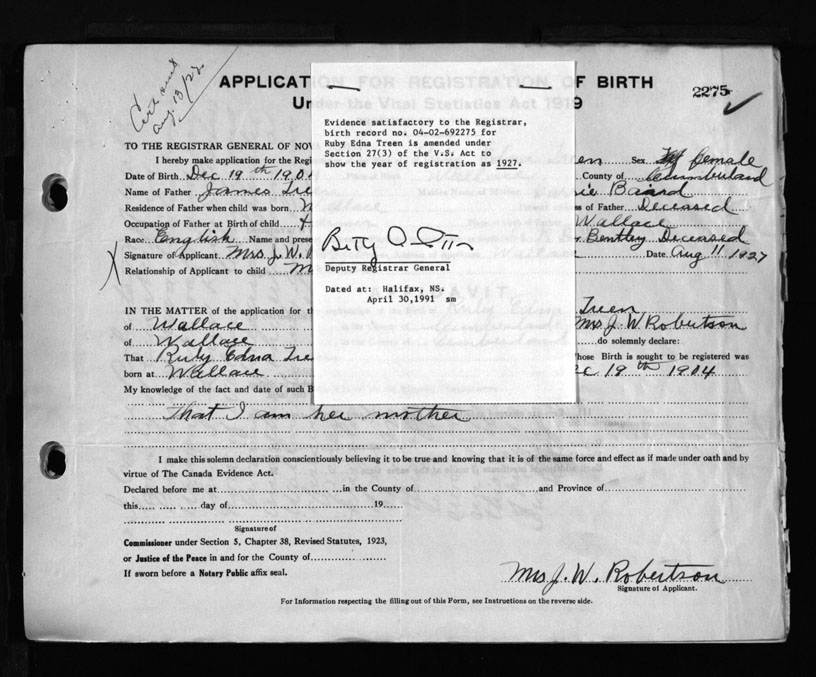 Cert sent
Aug 13/27
APPLICATION FOR REGISTRATION OF BIRTH
2275
Under the Vital Statistics Act 1919
TO THE REGISTRAR GENERAL OF NOV
I hereby make application for the Regi Treen Sex Female
Date of Birth Dec 19th 1904 County of Cumberland
Name of Father James Tre Baird
Residence of Father when child was born W s of Father Deceased
Occupation of Father at Birth of child Wallace
Race English Name and prese Bentley Deceased
Signature of Applicant Mrs. J. W. Date Aug 11 1927
Relationship of Applicant to child M
Evidence satisfactory to the Registrar,
birth record no. 04-02-692275 for
Ruby Edna Treen is amended under
Section 27(3) of the V.S. Act to
show the year of registration as 1927.
Deputy Registrar General
Dated at: Halifax, NS.
April 30,1991 sm
IN THE MATTER of the application for th Treen
of Wallace Mrs J. W. Robertson
of Wallace do solemnly declare:
That Ruby Edna Tre hose Birth is sought to be registered was
born at Wallace ec 19th 1904
My knowledge of the fact and date of such B
That I am her mother
I make this solemn declaration conscientiously believing it to be true and knowing that it is of the same force and effect as if made under oath and by
virtue of The Canada Evidence Act.
Declared before me at in the County of and Province of
this day of 19
Signature of
Commissioner under Section 5, Chapter 38, Revised Statutes, 1923,
or Justice of the Peace in and for the County of
If sworn before a Notary Public affix seal.
Mrs J. W. Robertson
Signature of Applicant.
For Information respecting the filling out of this Form, see Instructions on the reverse side.